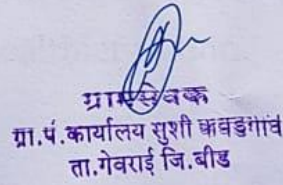 ग्रामसेवक
ग्रा.पं.कार्यालय सुशी वडगांव
ता.गेवराई जि.बीड